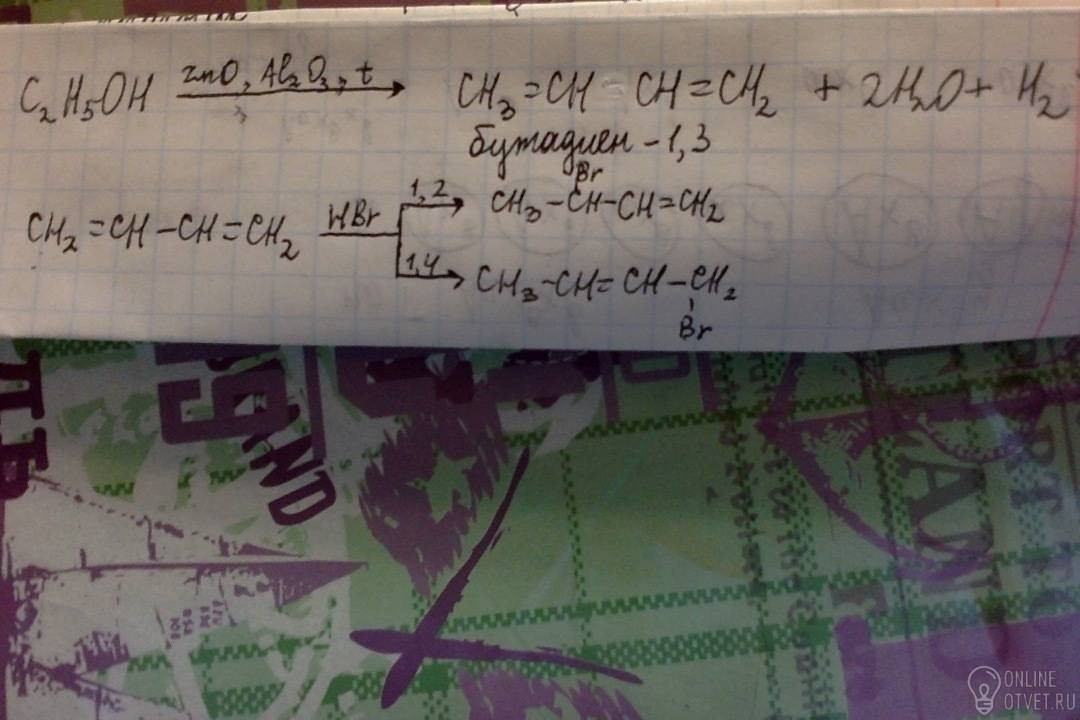 C₂H₅OH ZnO, Al₂O₃, t → CH₃=CH-CH=CH₂ + 2H₂O + H₂
бутадиен-1,3
Br
CH₂=CH-CH=CH₂ HBr 1,2 → CH₃-CH-CH=CH₂
1,4 → CH₃-CH=CH-CH₂
Br
AND
ONLINE
OTVET.RU